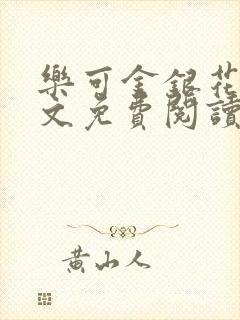 樂可金銀花
文免費閱讀
黃山人